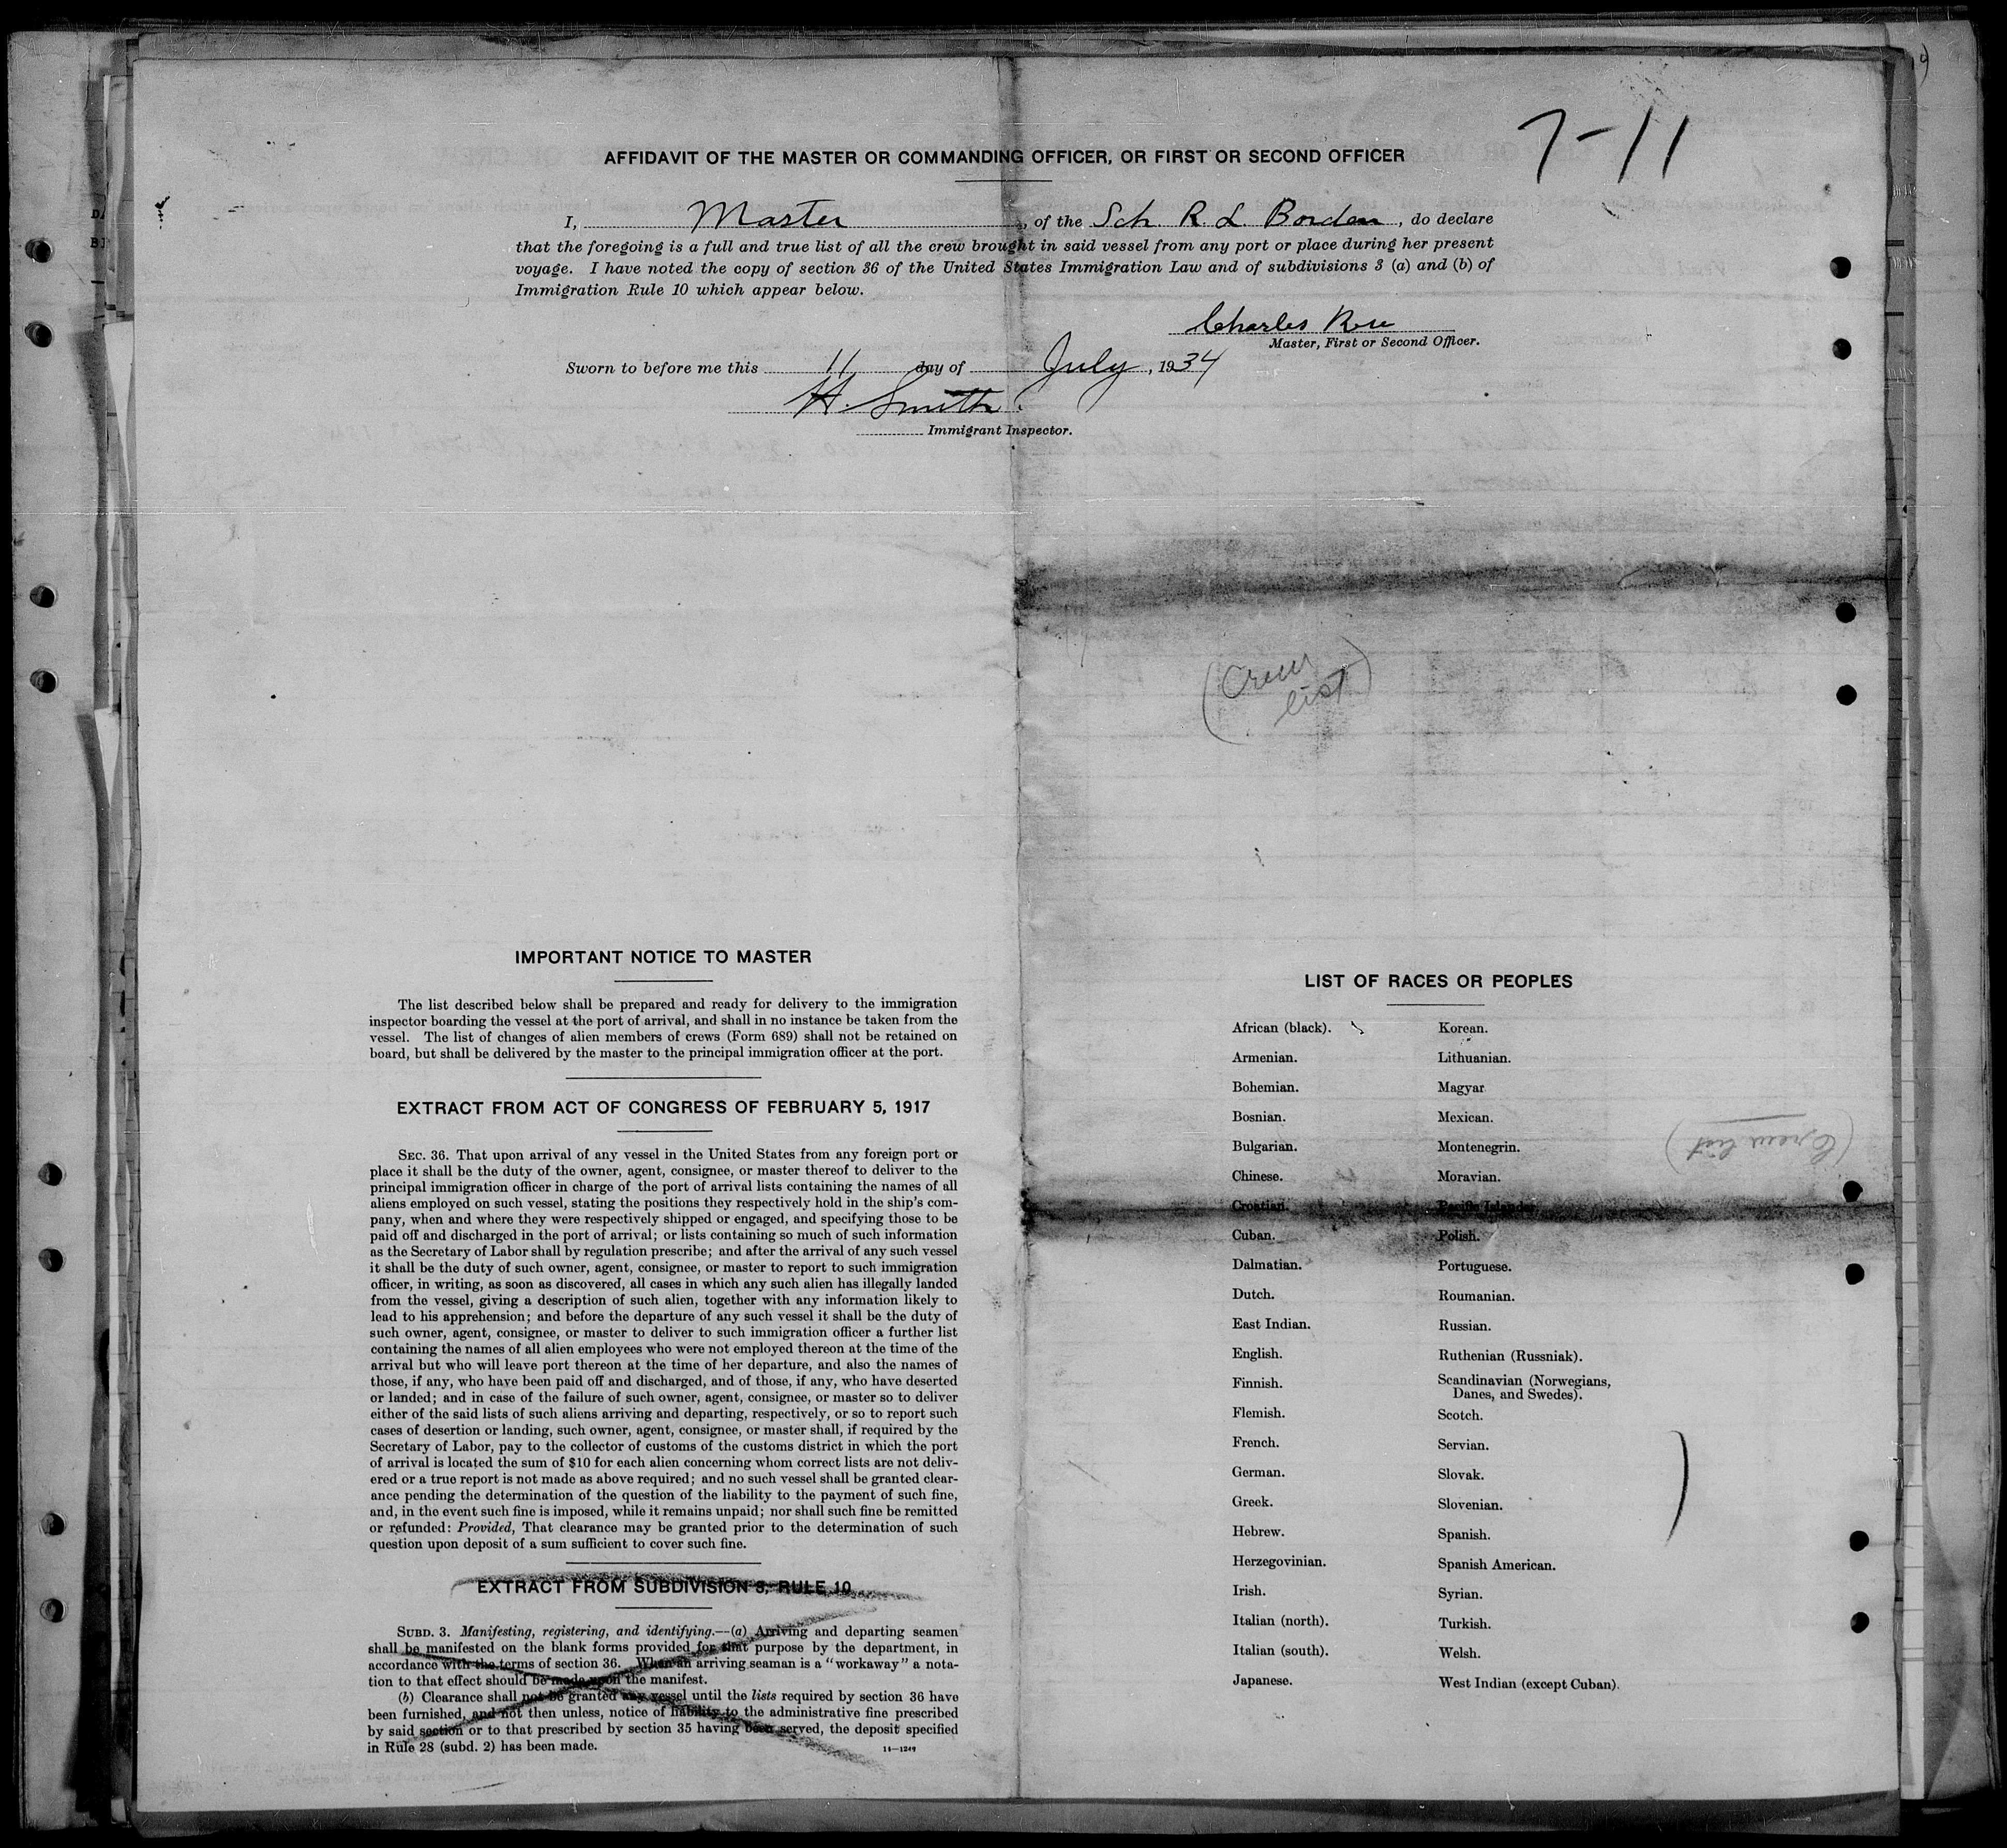 7-11
AFFIDAVIT OF THE MASTER OR COMMANDING OFFICER, OR FIRST OR SECOND OFFICER
I, Master, of the Sch. R. L Borden, do declare
that the foregoing is a full and true list of all the crew brought in said vessel from any port or place during her present
voyage. I have noted the copy of section 36 of the United States Immigration Law and of subdivisions 3 (a) and (b) of
Immigration Rule 10 which appear below.
Charles Rose
Master, First or Second Officer.
Sworn to before me this 11 day of July, 1934
H. Smith.
Immigrant Inspector.
(Crew
list)
IMPORTANT NOTICE TO MASTER
The list described below shall be prepared and ready for delivery to the immigration
inspector boarding the vessel at the port of arrival, and shall in no instance be taken from the
vessel. The list of changes of alien members of crews (Form 689) shall not be retained on
board, but shall be delivered by the master to the principal immigration officer at the port.
EXTRACT FROM ACT OF CONGRESS OF FEBRUARY 5, 1917
SEC. 36. That upon arrival of any vessel in the United States from any foreign port or
place it shall be the duty of the owner, agent, consignee, or master thereof to deliver to the
principal immigration officer in charge of the port of arrival lists containing the names of all
aliens employed on such vessel, stating the positions they respectively hold in the ship's com-
pany, when and where they were respectively shipped or engaged, and specifying those to be
paid off and discharged in the port of arrival; or lists containing so much of such information
as the Secretary of Labor shall by regulation prescribe; and after the arrival of any such vessel
it shall be the duty of such owner, agent, consignee, or master to report to such immigration
officer, in writing, as soon as discovered, all cases in which any such alien has illegally landed
from the vessel, giving a description of such alien, together with any information likely to
lead to his apprehension; and before the departure of any such vessel it shall be the duty of
such owner, agent, consignee, or master to deliver to such immigration officer a further list
containing the names of all alien employees who were not employed thereon at the time of the
arrival but who will leave port thereon at the time of her departure, and also the names of
those, if any, who have been paid off and discharged, and of those, if any, who have deserted
or landed; and in case of the failure of such owner, agent, consignee, or master so to deliver
either of the said lists of such aliens arriving and departing, respectively, or so to report such
cases of desertion or landing, such owner, agent, consignee, or master shall, if required by the
Secretary of Labor, pay to the collector of customs of the customs district in which the port
of arrival is located the sum of $10 for each alien concerning whom correct lists are not deliv-
ered or a true report is not made as above required; and no such vessel shall be granted clear-
ance pending the determination of the question of the liability to the payment of such fine,
and, in the event such fine is imposed, while it remains unpaid; nor shall such fine be remitted
or refunded: Provided, That clearance may be granted prior to the determination of such
question upon deposit of a sum sufficient to cover such fine.
EXTRACT FROM SUBDIVISION 3, RULE 10
SUBD. 3. Manifesting, registering, and identifying.—(a) Arriving and departing seamen
shall be manifested on the blank forms provided for that purpose by the department, in
accordance with the terms of section 36. When an arriving seaman is a "workaway" a nota-
tion to that effect should be made upon the manifest.
(b) Clearance shall not be granted any vessel until the lists required by section 36 have
been furnished, and not then unless, notice of liability to the administrative fine prescribed
by said section or to that prescribed by section 35 having been served, the deposit specified
in Rule 28 (subd. 2) has been made.
14—1249
LIST OF RACES OR PEOPLES
African (black).
Armenian.
Bohemian.
Bosnian.
Bulgarian.
Chinese.
Croatian.
Cuban.
Dalmatian.
Dutch.
East Indian.
English.
Finnish.
Flemish.
French.
German.
Greek.
Hebrew.
Herzegovinian.
Irish.
Italian (north).
Italian (south).
Japanese.
Korean.
Lithuanian.
Magyar
Mexican.
Montenegrin.
Moravian.
Pacific Islander.
Polish.
Portuguese.
Roumanian.
Russian.
Ruthenian (Russniak).
Scandinavian (Norwegians,
Danes, and Swedes).
Scotch.
Servian.
Slovak.
Slovenian.
Spanish.
Spanish American.
Syrian.
Turkish.
Welsh.
West Indian (except Cuban).
(Crew list)